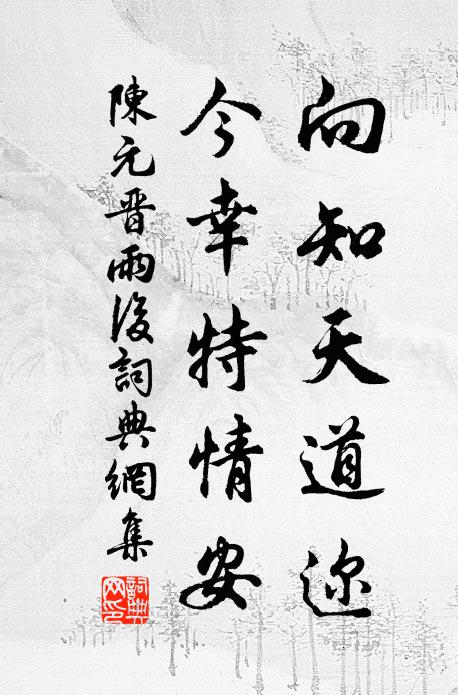 向知天道迩
今幸特情安
陳元晋雨後詞典網集
詞典網印